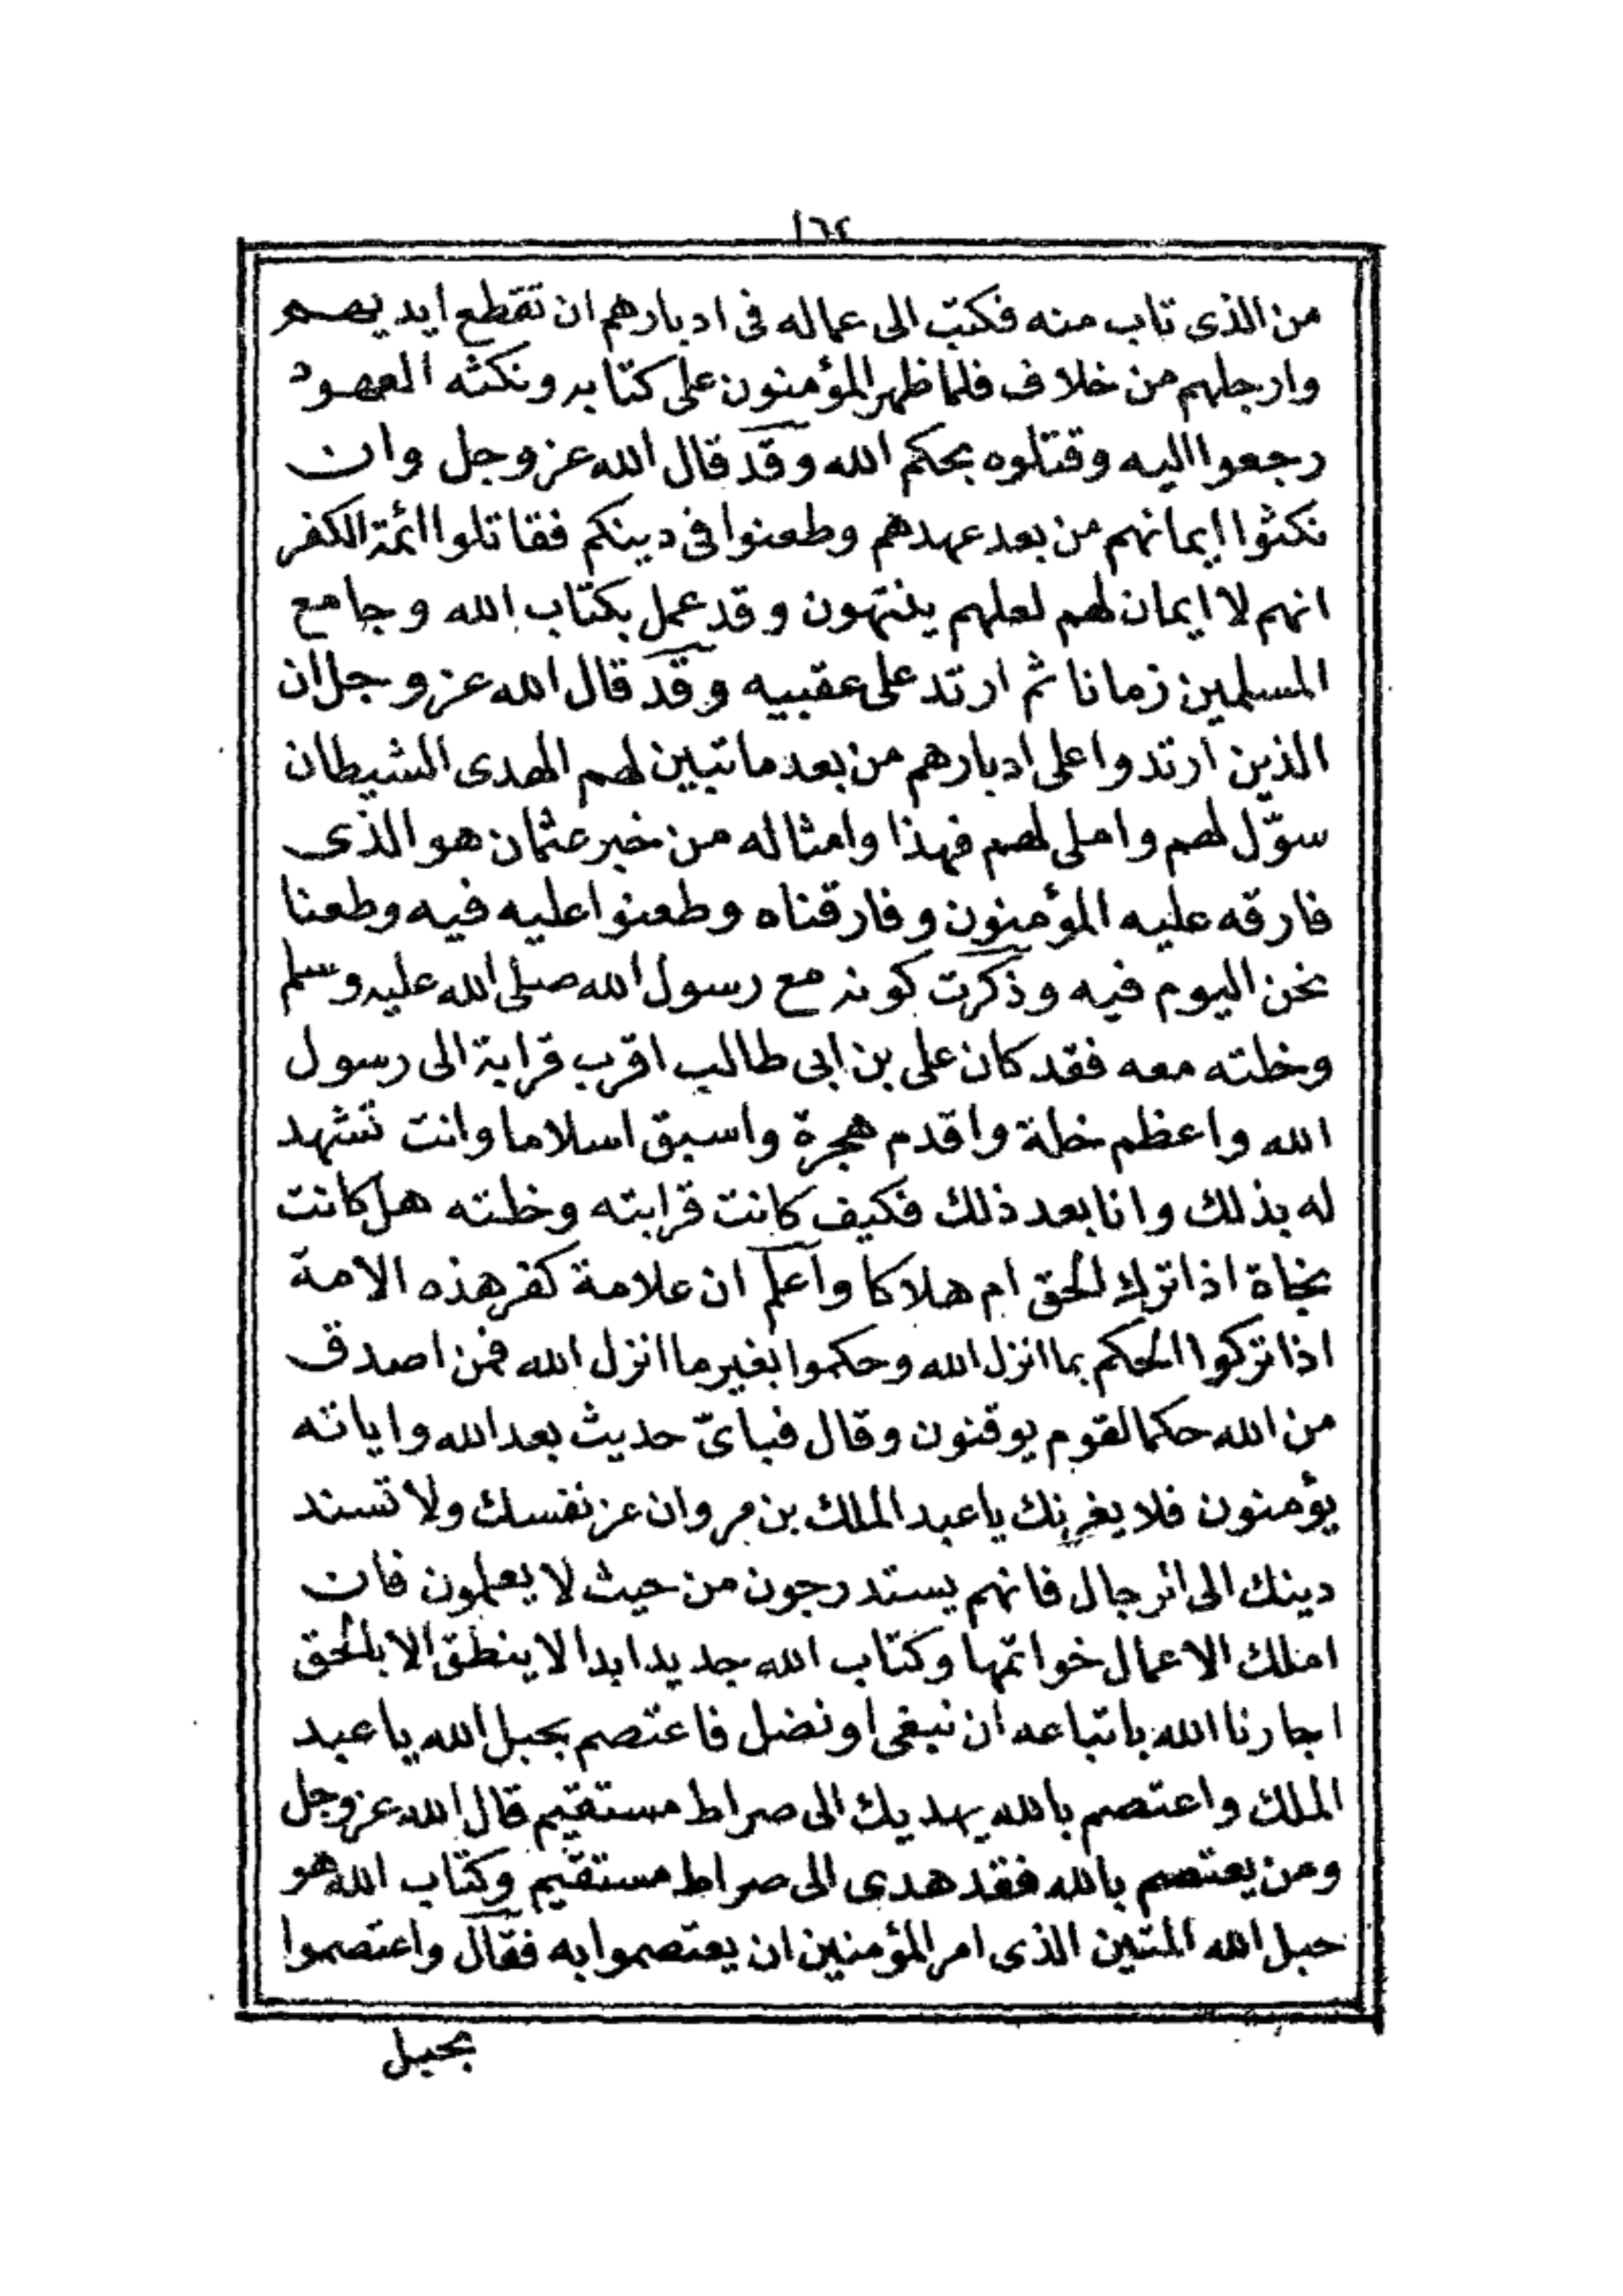 ١٦٢
من الذى تاب منه فكتب الى عماله فى ادبارهم ان تقطع ايديهم
وارجلهم من خلاف فلما ظهر المؤمنون على كتابه ونكثه العهود
رجعوا اليه وقتلوه بحكم الله وقد قال الله عز وجل وان
نكثوا ايمانهم من بعد عهدهم وطعنوا فى دينكم فقاتلوا ائمة الكفر
انهم لا ايمان لهم لعلهم ينتهون وقد عمل بكتاب الله وجامع
المسلمين زمانا ثم ارتد على عقبيه وقد قال الله عز وجل ان
الذين ارتدوا على ادبارهم من بعد ما تبين لهم الهدى الشيطان
سوّل لهم واملى لهم فهذا وامثاله من خبر عثمان هو الذى
فارقه عليه المؤمنون وفارقناه وطعنوا عليه فيه وطعنا
نحن اليوم فيه وذكرت كونه مع رسول الله صلى الله عليه وسلم
وخلته معه فقد كان على بن ابى طالب اقرب قرابة الى رسول
الله واعظم خلة واقدم هجرة واسبق اسلاما وانت تشهد
له بذلك وانا بعد ذلك فكيف كانت قرابته وخلته هل كانت
نجاة اذا ترك الحق ام هلاكا واعلم ان علامة كفر هذه الامة
اذا تركوا الحكم بما انزل الله وحكموا بغير ما انزل الله فمن اصدق
من الله حكما لقوم يوقنون وقال فبأىّ حديث بعد الله واياته
يؤمنون فلا يغرنك يا عبد الملك بن مروان عز نفسك ولا تسند
دينك الى الرجال فانهم يستدرجون من حيث لا يعلمون فان
املك الاعمال خواتمها وكتاب الله جديد ابدا لا ينطق الا بالحق
اجارنا الله باتباعه ان نبغى او نضل فاعتصم بحبل الله يا عبد
الملك واعتصم بالله يهديك الى صراط مستقيم قال الله عز وجل
ومن يعتصم بالله فقد هدى الى صراط مستقيم وكتاب الله هو
حبل الله المتين الذى امر المؤمنين ان يعتصموا به فقال واعتصموا
بحبل